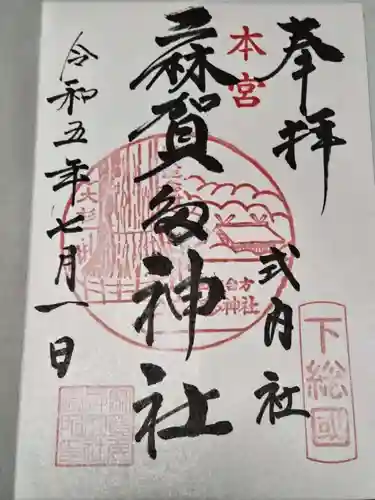 奉拝
式内社
下総國
本宮
麻賀多神社
大杉
令和五年七月一日